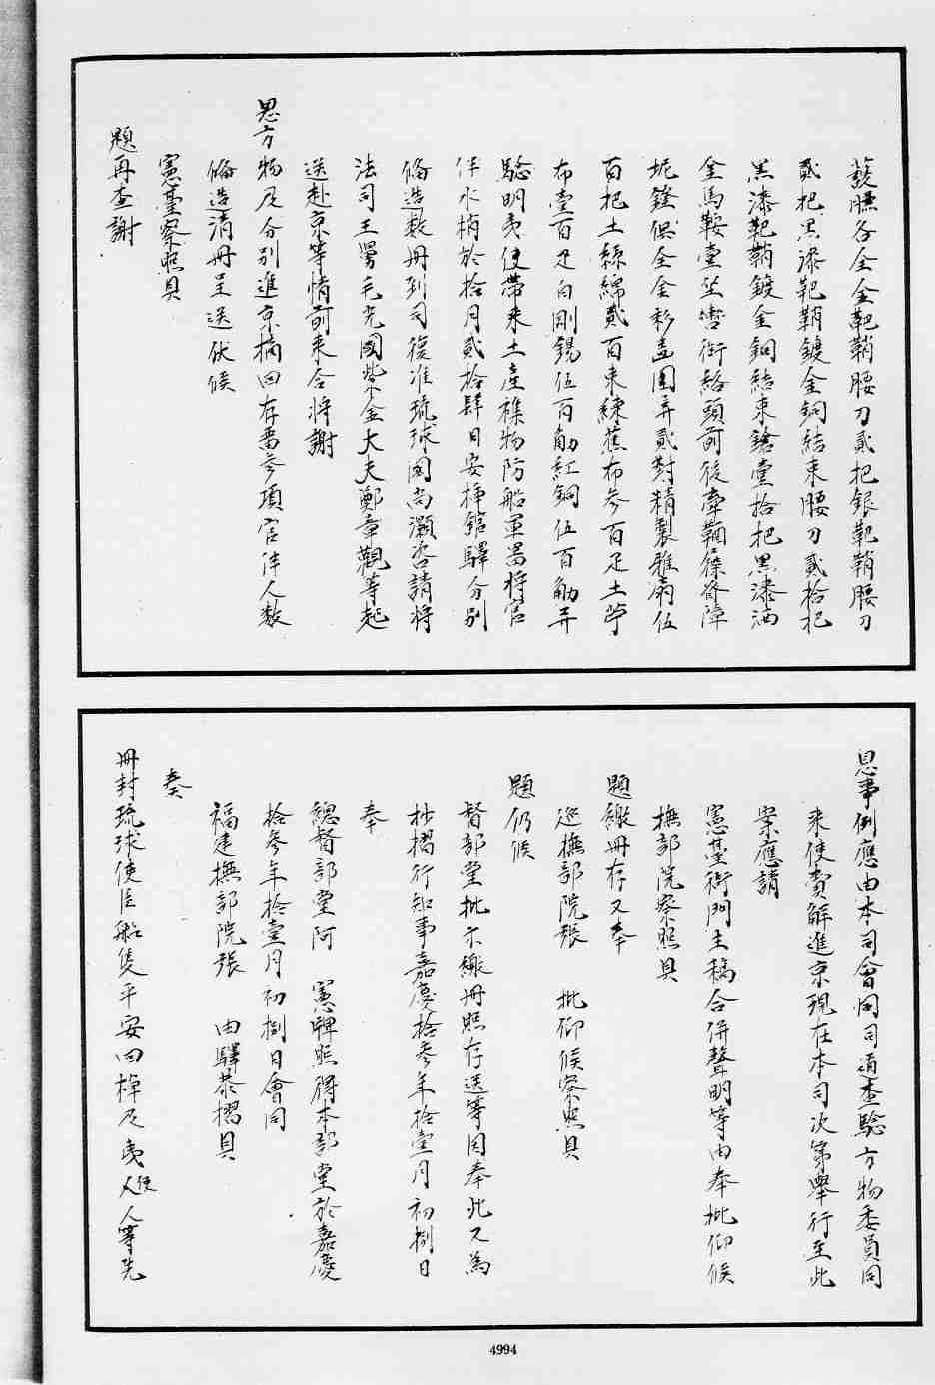 護膝各全金靶鞘腰刀貳把銀靶鞘腰刀
貳把黑漆靶鞘鍍金銅結束腰刀貳拾把
黑漆靶鞘鍍金銅結束鎗壹拾把黑漆洒
金馬鞍壹坐轡銜絡頭前後牽鞦屜脊障
坭鐙俱全金彩畫圍屏貳對精製雅扇伍
百把土絲綿貳百束練蕉布參百疋土苧
布壹百疋白剛錫伍百觔紅銅伍百觔并
驗明夷使帶來土產襍物防船軍器將官
伴水梢於拾月貳拾肆日安揷館驛分別
偹造数冊到司復准琉球國尚灝咨請將
法司王舅毛光國紫金大夫鄭章觀等起
送赴京等情前來合將謝
恩方物及分別進京摘回存留各項官伴人数
偹造清冊呈送伏候
憲臺察照具
題再查謝
恩事例應由本司會同司道查驗方物委員同
來使賫解進京現在本司次第舉行至此
案應請
憲臺衙門主稿合併聲明等由奉批仰候
撫部院察照具
題繳冊存又奉
巡撫部院張　批仰候察照具
題仍候
督部堂批示繳冊照存送等因奉此又為
抄摺行知事嘉慶拾參年拾壹月初捌日
奉
總督部堂阿　憲牌照得本部堂於嘉慶
拾參年拾壹月初捌日會同
福建撫部院張　由驛恭摺具
奏
冊封琉球使臣船隻平安回棹及夷使人人等先
4994